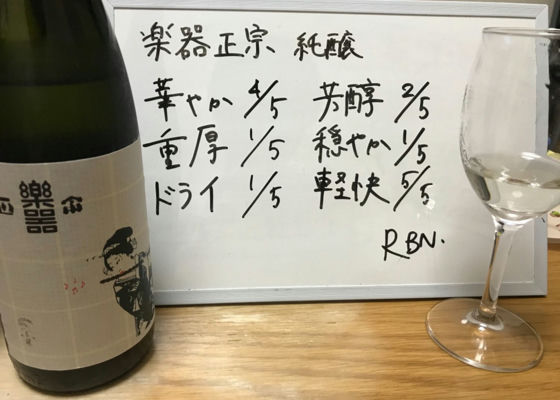 楽器正宗 純醸
華やか 4/5 芳醇 2/5
重厚 1/5 穏やか 1/5
ドライ 1/5 軽快 5/5
RBN.
樂器